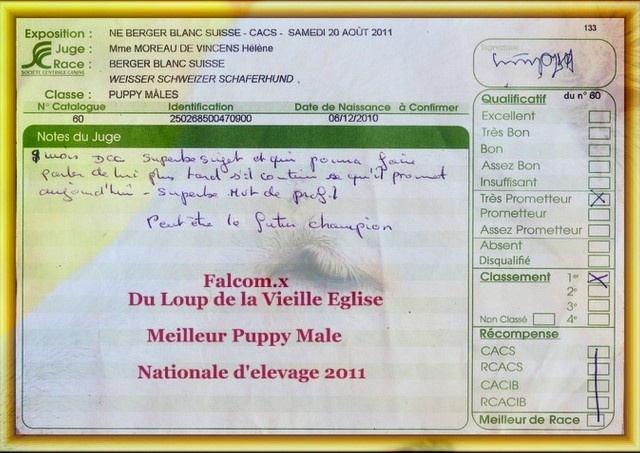 Exposition : NE BERGER BLANC SUISSE - CACS - SAMEDI 20 AOÛT 2011
133
Juge : Mme MOREAU DE VINCENS Hélène
Race : BERGER BLANC SUISSE
SOCIÉTÉ CENTRALE CANINE
WEISSER SCHWEIZER SCHAFERHUND ,
Classe : PUPPY MÂLES
N° Catalogue Identification Date de Naissance à Confirmer
60 250268500470900 06/12/2010
Notes du Juge
8 mois DCC Superbe sujet et qui pourra faire
parler de lui plus tard s'il continue ce qu'il promet
aujourd'hui - Superbe Mât de profil
Peut être le futur champion
Falcom.x
Du Loup de la Vieille Eglise
Meilleur Puppy Male
Nationale d'elevage 2011
Signature
Qualificatif du n° 60
Excellent
Très Bon
Bon
Assez Bon
Insuffisant
Très Prometteur X
Prometteur
Assez Prometteur
Absent
Disqualifié
Classement 1er X
2e
3e
Non Classé 4e
Récompense
CACS
RCACS
CACIB
RCACIB
Meilleur de Race